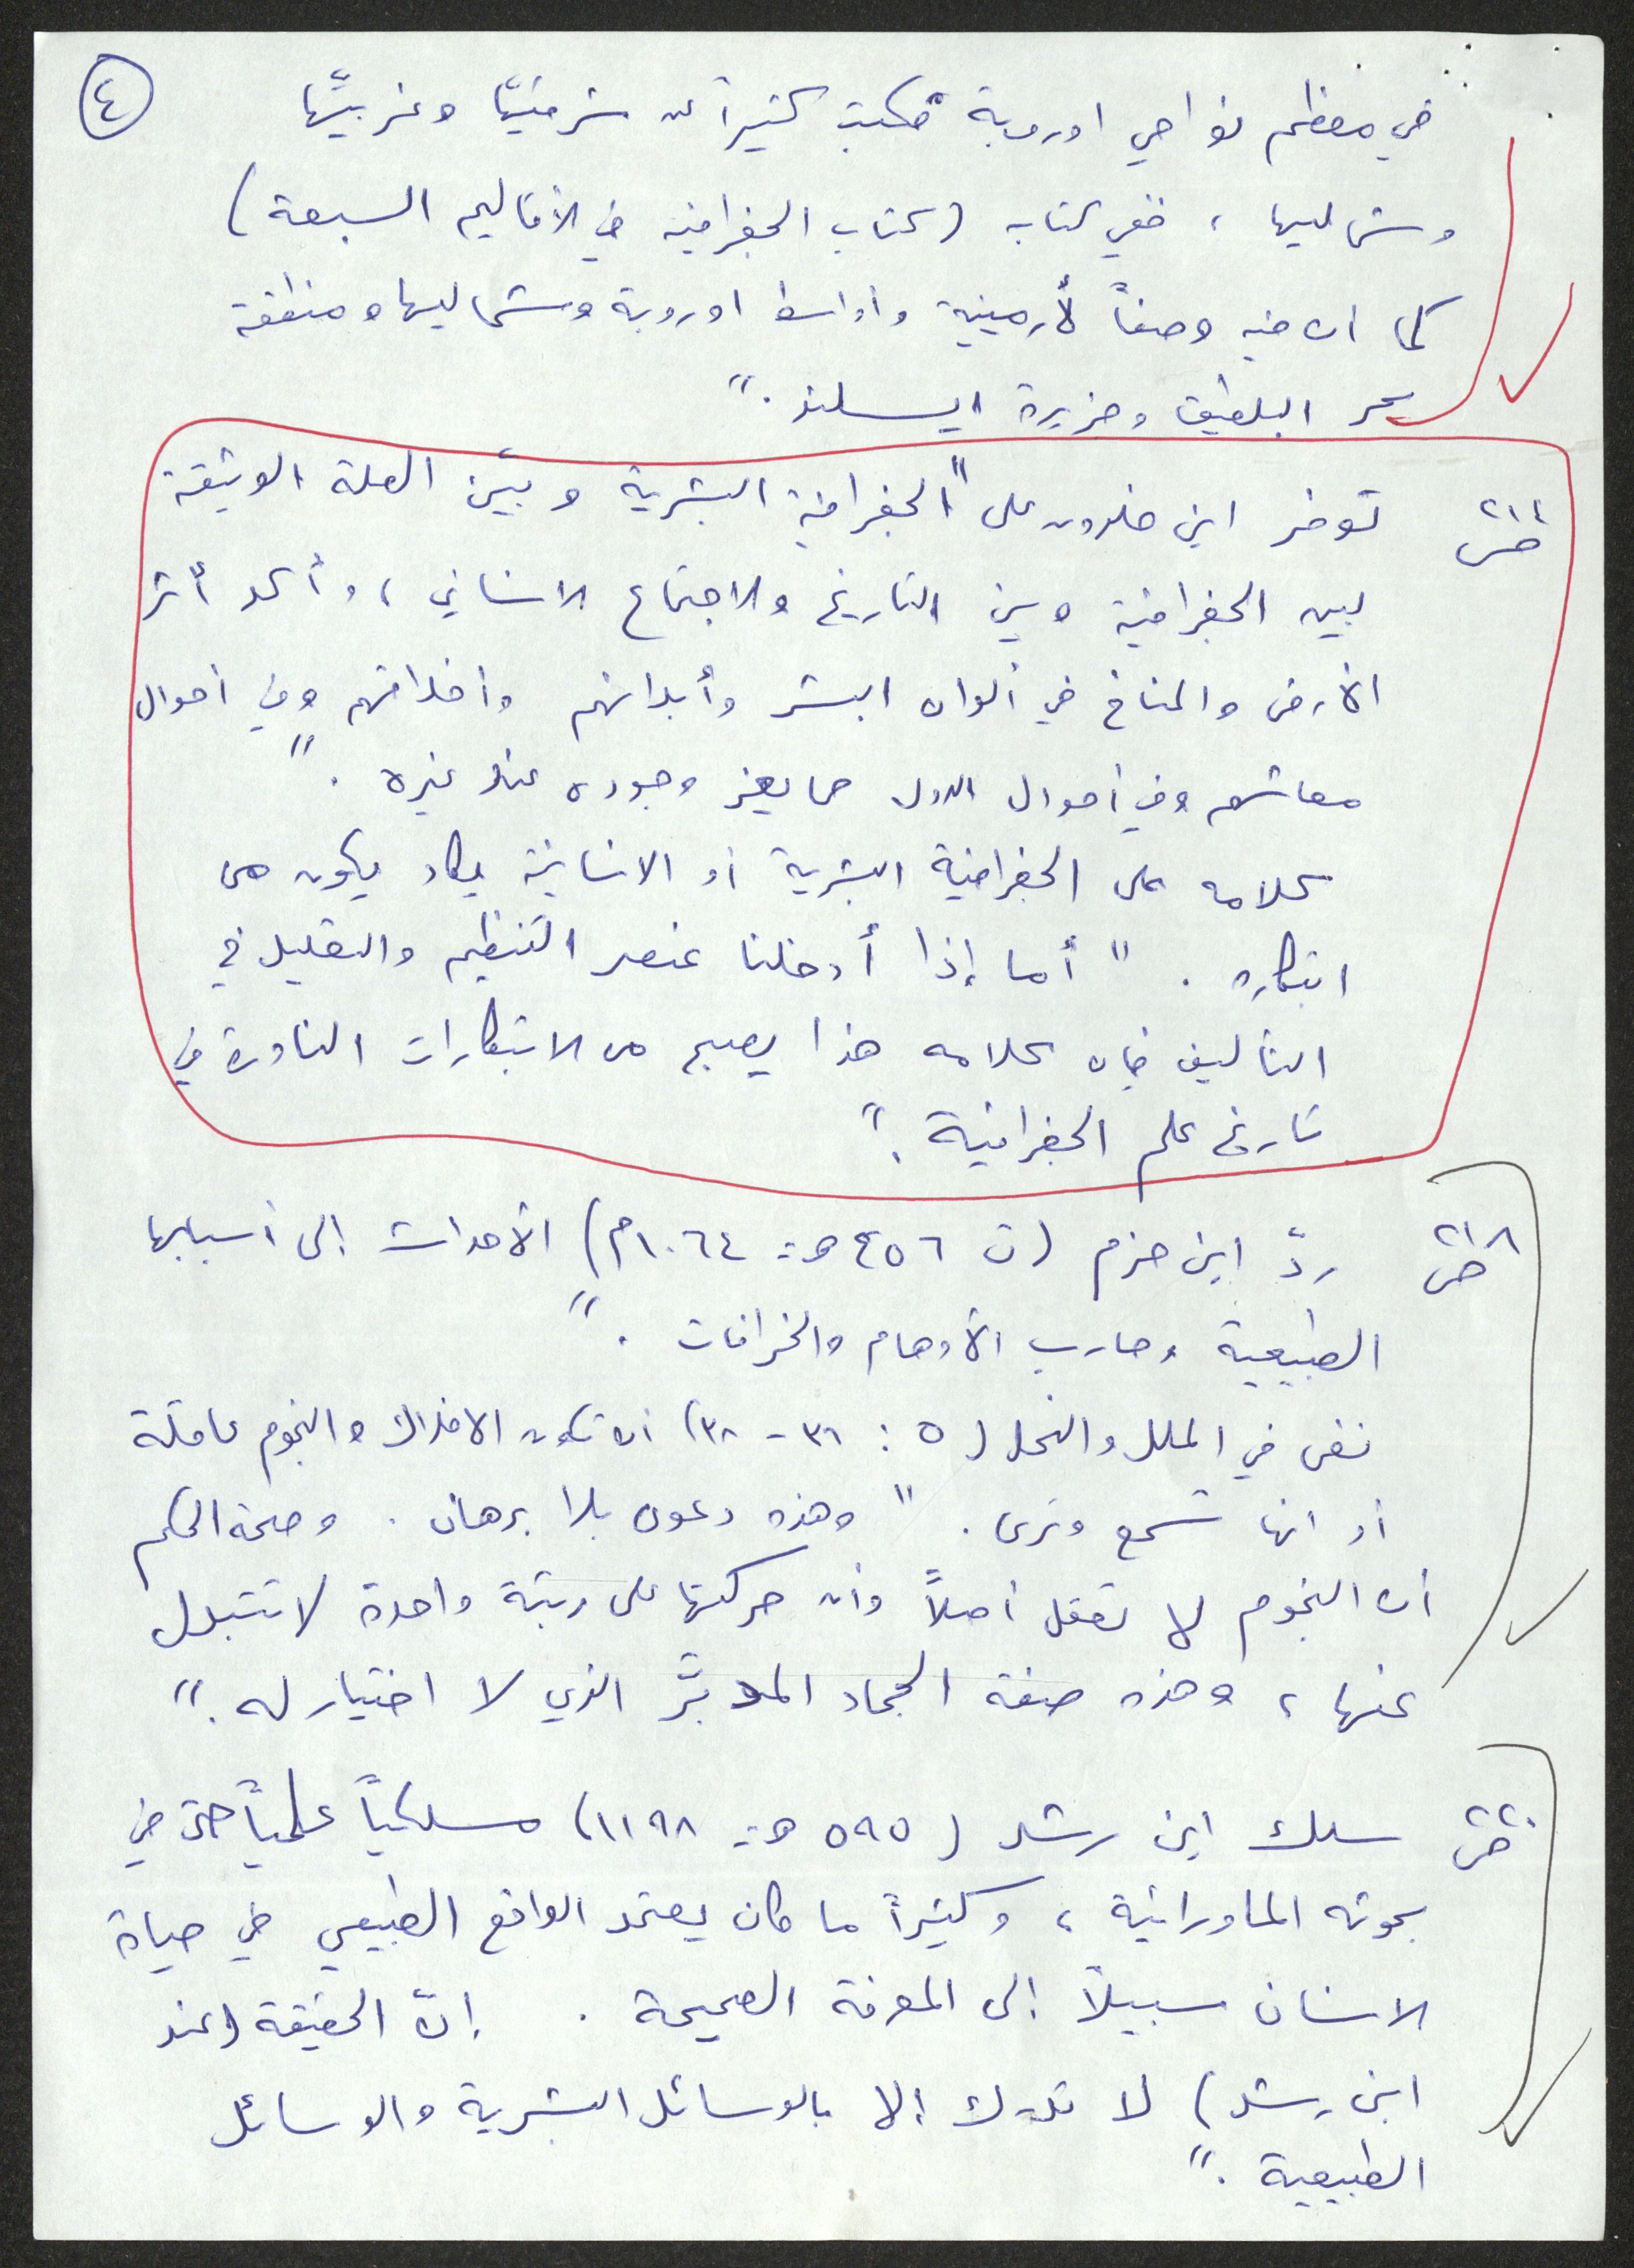 ٤
في معظم نواحي اوروبة فكتب كثيراً عن شرقيّها وغربيّها
وشماليها ، ففي كتابه (كتاب الجغرافية في الأقاليم السبعة)
كما ان فيه وصفاً لأرمينية وأواسط اوروبة وشماليها ومنطقة
بحر البلطيق وجزيرة ايسلند . "
ص ٢١١ توفر ابن خلدون على " الجغرافية البشرية وبيّن الصلة الوثيقة
بين الجغرافية وبين التاريخ والاجتماع الانساني ، وأكد أثر
الأرض والمناخ في ألوان البشر وأبدانهم وأخلاقهم وفي أحوال
معاشهم وفي أحوال الدول مما يعز وجوده عند غيره . "
كلامه على الجغرافية البشرية أو الانسانية يكاد يكون من
ابتكاره . " أما إذا أدخلنا عنصر التنظيم والتعليل في
التأليف فإن كلامه هذا يصبح من الابتكارات النادرة في
تاريخ علم الجغرافية . "
ص ٢١٨ ردّ ابن حزم (ت ٤٥٦ هـ = ١٠٦٤م) الأحداث إلى أسبابها
الطبيعية وحارب الأوهام والخرافات . "
نفى في الملل والنحل (٥ : ٣٦ - ٣٨) أن تكون الافلاك والنجوم عاقلة
أو انها تسمع وترى . " وهذه دعوى بلا برهان . وصحة الحكم
أن النجوم لا تعقل أصلاً وأن حركتها على رتبة واحدة لا تتبدل
عنها ، وهذه صفة الجماد المدبَّر الذي لا اختيار له . "
ص ٢٢٠ سلك ابن رشد (٥٩٥ هـ = ١١٩٨) مسلكياً علمياً حتى في
بحوثه الماورائية ، وكثيراً ما كان يعتمد الواقع الطبيعي في حياة
الانسان سبيلاً إلى المعرفة الصحيحة . إنّ الحقيقة (عند
ابن رشد) لا تدرك إلا بالوسائل البشرية والوسائل
الطبيعية . "